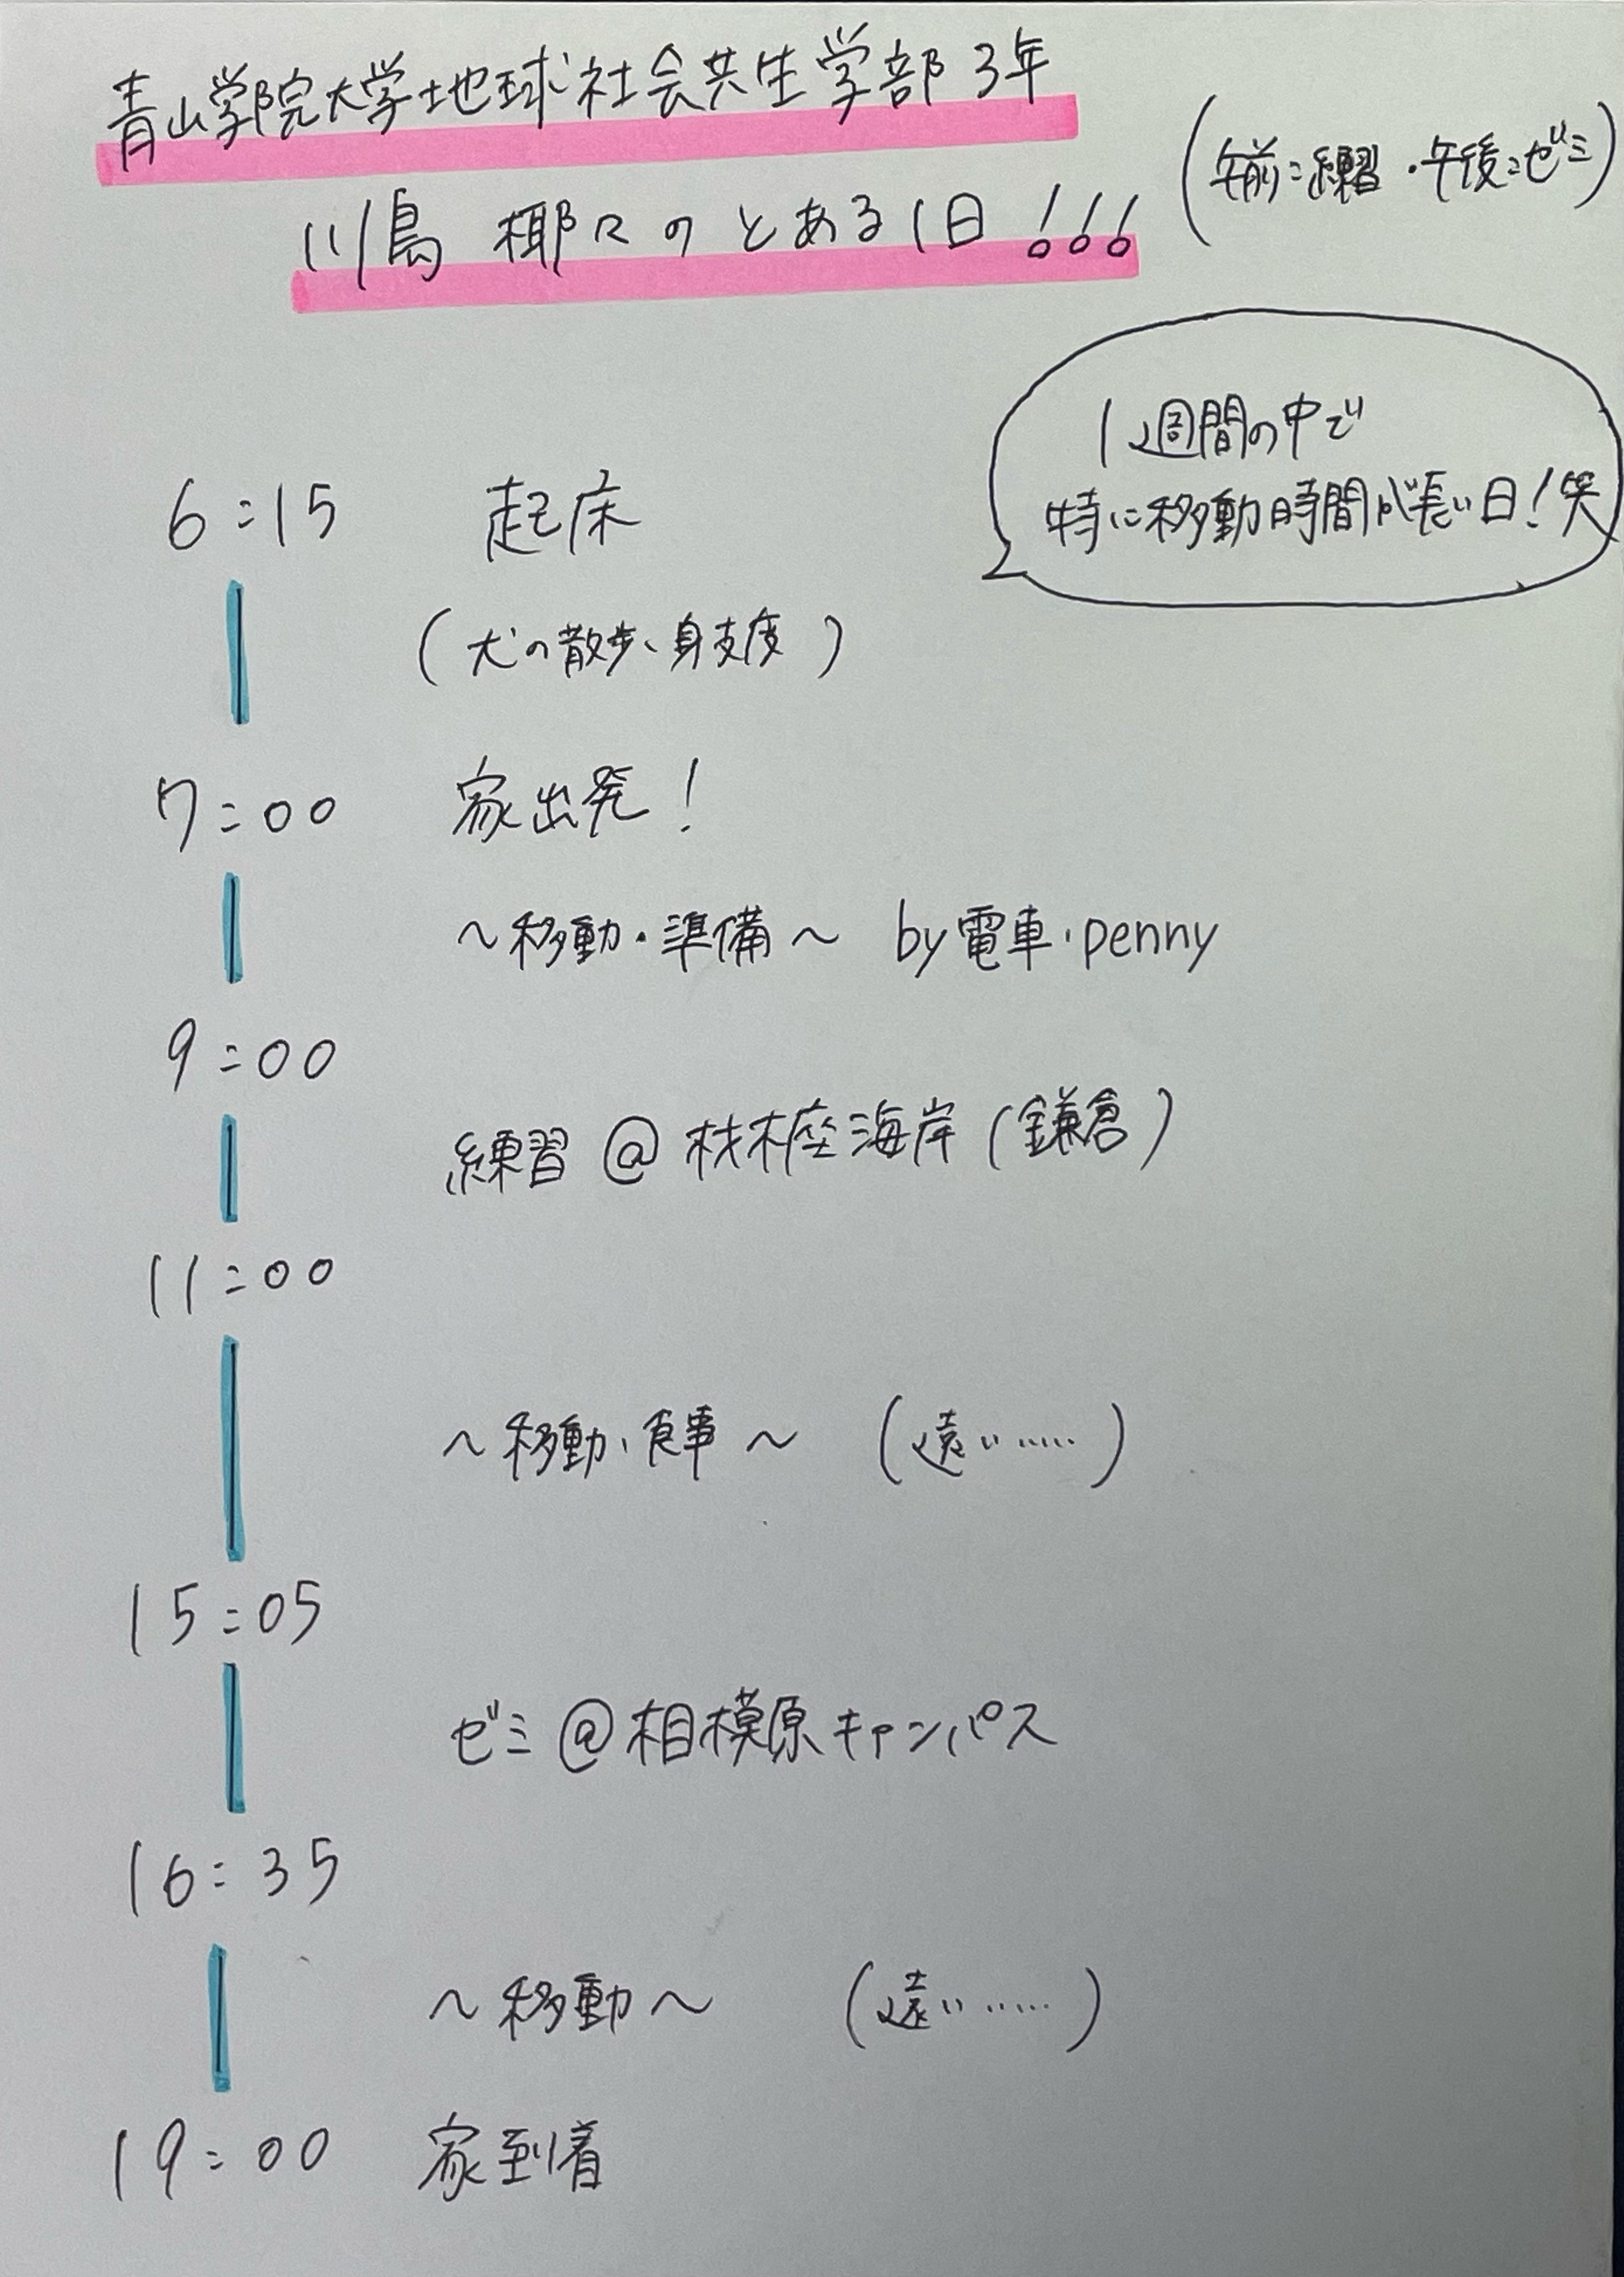 青山学院大学地球社会共生学部3年
川島 椰々のとある1日!!!
(午前:練習・午後:ゼミ)
1週間の中で
特に移動時間が長い日!笑
6:15 起床
(犬の散歩、身支度)
7:00 家出発!
〜移動・準備〜 by電車・penny
9:00
練習@材木座海岸(鎌倉)
11:00
〜移動、食事〜 (遠い……)
15:05
ゼミ@相模原キャンパス
16:35
〜移動〜 (遠い……)
19:00 家到着